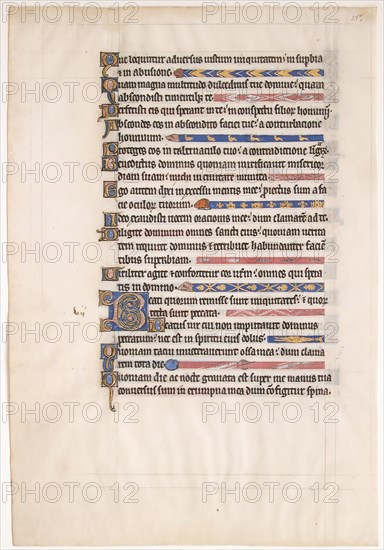 Que loquuntur adversus iustum iniquitatem: in supbia
& in abusione.
Quam magna multitudo dulcedinis tue domine: quam
abscondisti timentib; te.
Perfecisti eis qui sperant in te: in conspectu filior hominū
Abscondes eos in abscondito faciei tue: a conturbatione
hominum.
Proteges eos in tabernaculo tuo: a contradictione
Benedictus dominus quoniam mirificavit misericor
diam suam: michi in civitate munita.
Ego autem dixi in excessu mentis mee: proiectus sum a fa
cie oculor tuorum.
Ideo exaudisti vocem orationis mee: dum clamarem ad te.
Diligite dominum omnes sancti eius: quoniam veritatem
requiret dominus & retribuet habundanter facien
tibus superbiam.
Viriliter agite & confortetur cor vestrum: omnes qui spera
tis in domino.
Beati quorum remisse sunt iniquitates: & quor
tecta sunt peccata.
Beatus vir cui non imputavit dominus
peccatum: nec est in spiritu eius dolus.
Quoniam tacui inveteraverunt ossa mea: dum clama
rem tota die.
Quoniam die ac nocte gravata est super me manus tua
conversus sum in erumpna mea dum cōfigitur spina.
PHOTO12